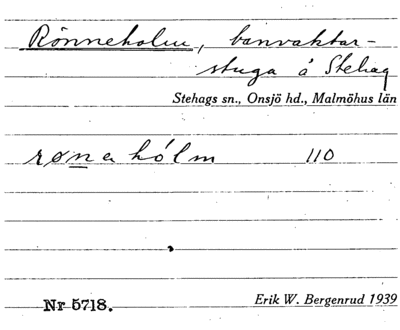 Rönneholm, banvaktar-
stuga å Stehag
Stehags sn., Onsjö hd., Malmöhus län
røna hólm 110
Nr 5718. Erik W. Bergenrud 1939